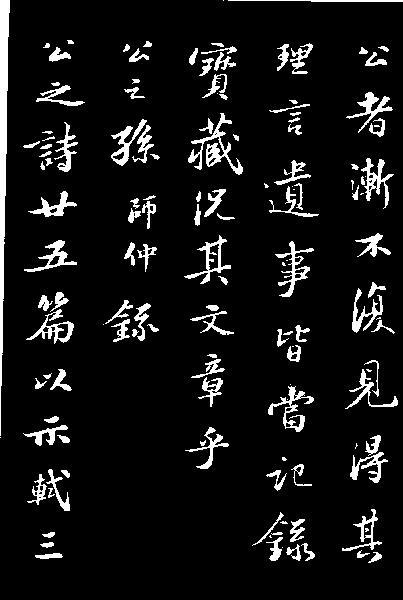 公者漸不復見得其
理言遺事皆當記錄
寶藏況其文章乎
公之孫師仲錄
公之詩廿五篇以示軾三